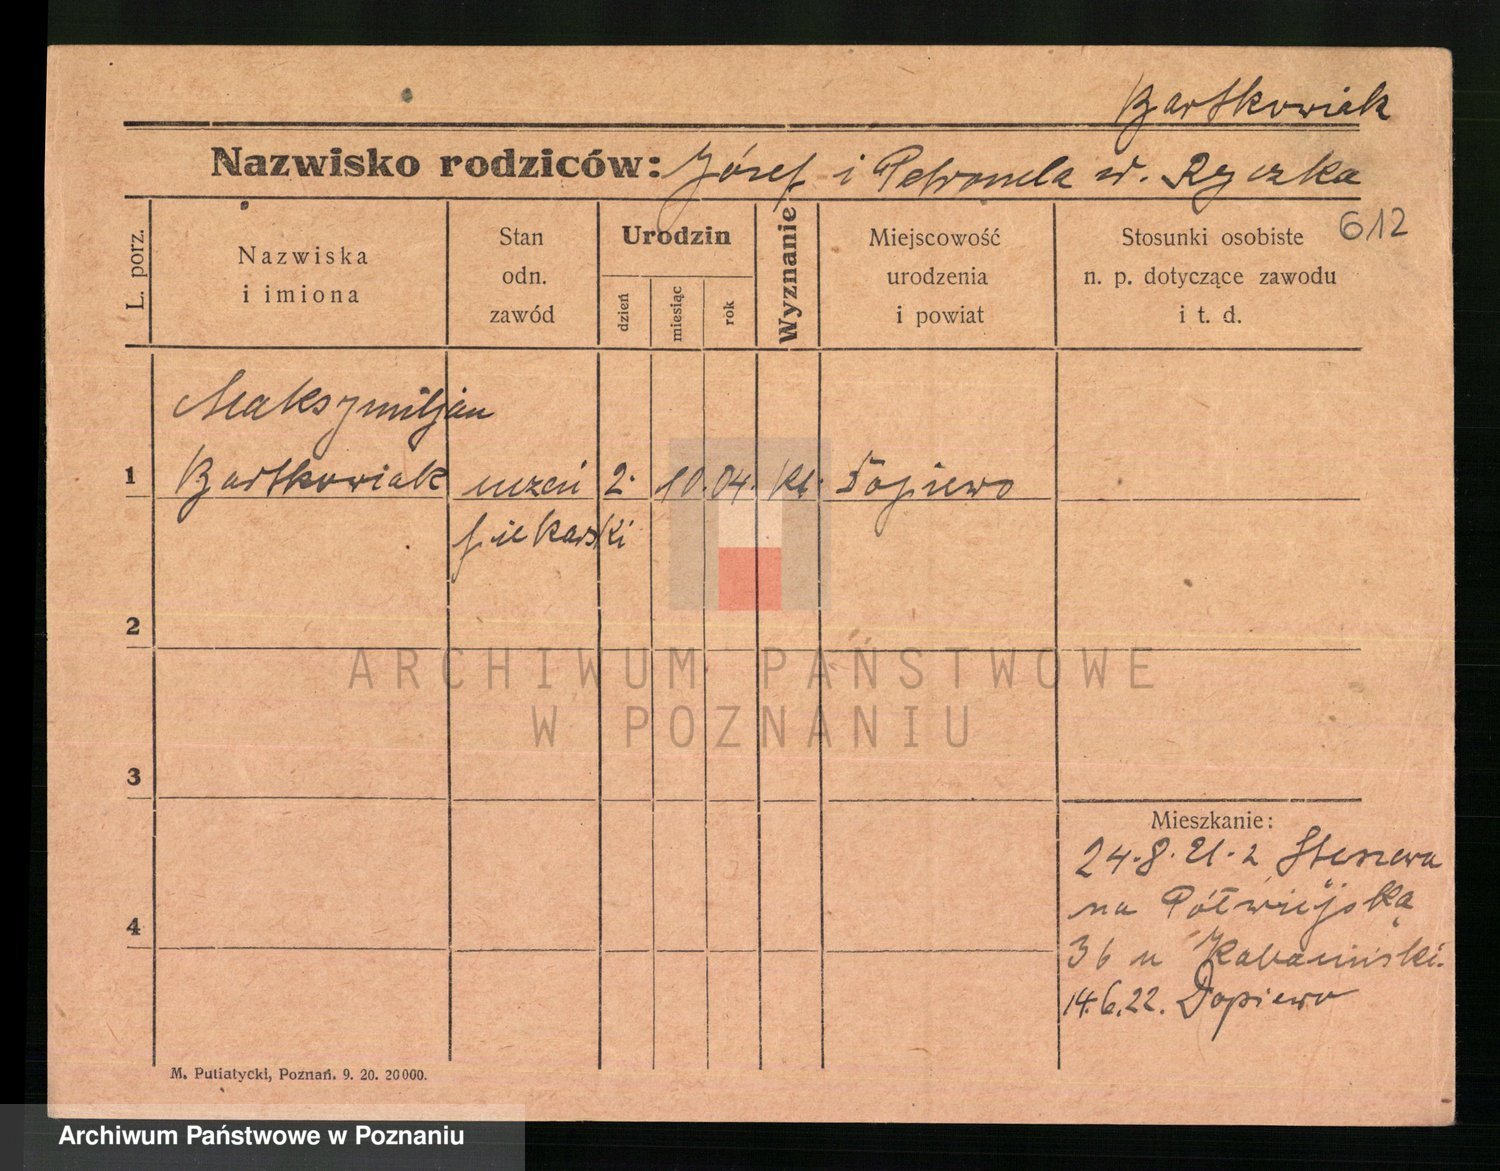 Bartkowiak
Nazwisko rodziców: Józef i Petronela ur. Ryczka
612
L. porz.
Nazwiska
i imiona
Stan
odn.
zawód
Urodzin
dzień
miesiąc
rok
Wyznanie
Miejscowość
urodzenia
i powiat
Stosunki osobiste
n. p. dotyczące zawodu
i t. d.
Maksymiljan
1 Bartkowiak uczeń 2. 10. 04. kt. Dopiewo
piekarski
2
3
4
Mieszkanie:
24.8.21. z Stęszewa
na Półwiejską
36 u
14.6.22. Dopiewo
M. Putiatycki, Poznań. 9. 20. 20000.
ARCHIWUM PAŃSTWOWE
W POZNANIU
Archiwum Państwowe w Poznaniu